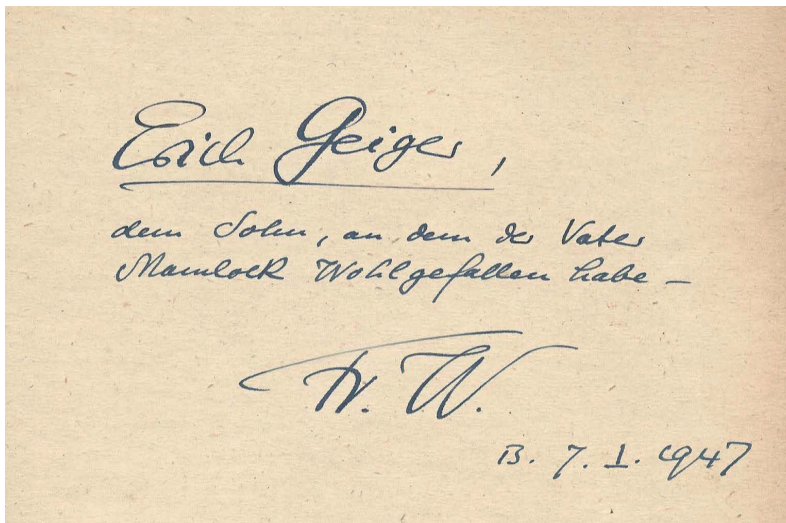 Erich Geiger,
dem Sohn, an dem der Vater
Mamlock Wohlgefallen habe –
Fr. W.
B. 7. I. 1947